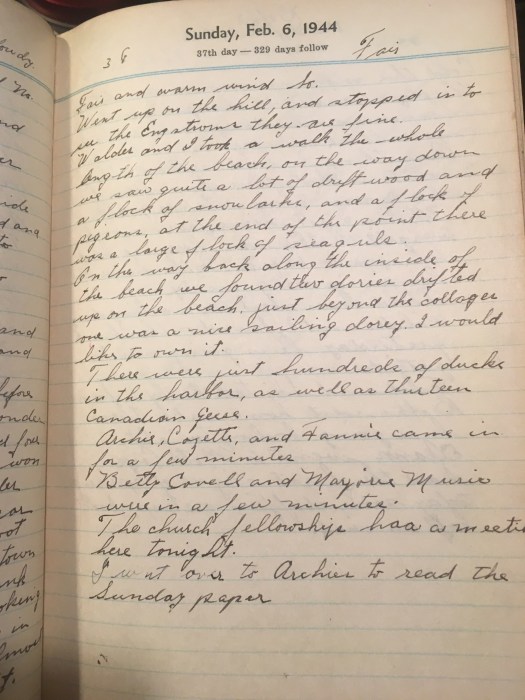 Sunday, Feb. 6, 1944
37th day — 329 days follow
36
Fair
Fair and warm wind So.
Went up on the hill, and stopped in to
see the Engstroms they are fine.
Walder and I took a walk the whole
length of the beach, on the way down
we saw quite a lot of drift wood and
a flock of snow larks, and a flock of
pigeons, at the end of the point there
was a large flock of seaguls.
On the way back along the inside of
the beach we found two dories drifted
up on the beach. just beyond the cottages
one was a nice sailing dorey. I would
like to own it.
There were just hundreds of ducks
in the harbor, as well as thirteen
Canadian Geese.
Archie, Cozette, and Fannie came in
for a few minutes
Betty Covell and Marjorie Music
were in a few minutes.
The church fellowship haa a meeti
here tonight.
I went over to Archies to read the
Sunday paper